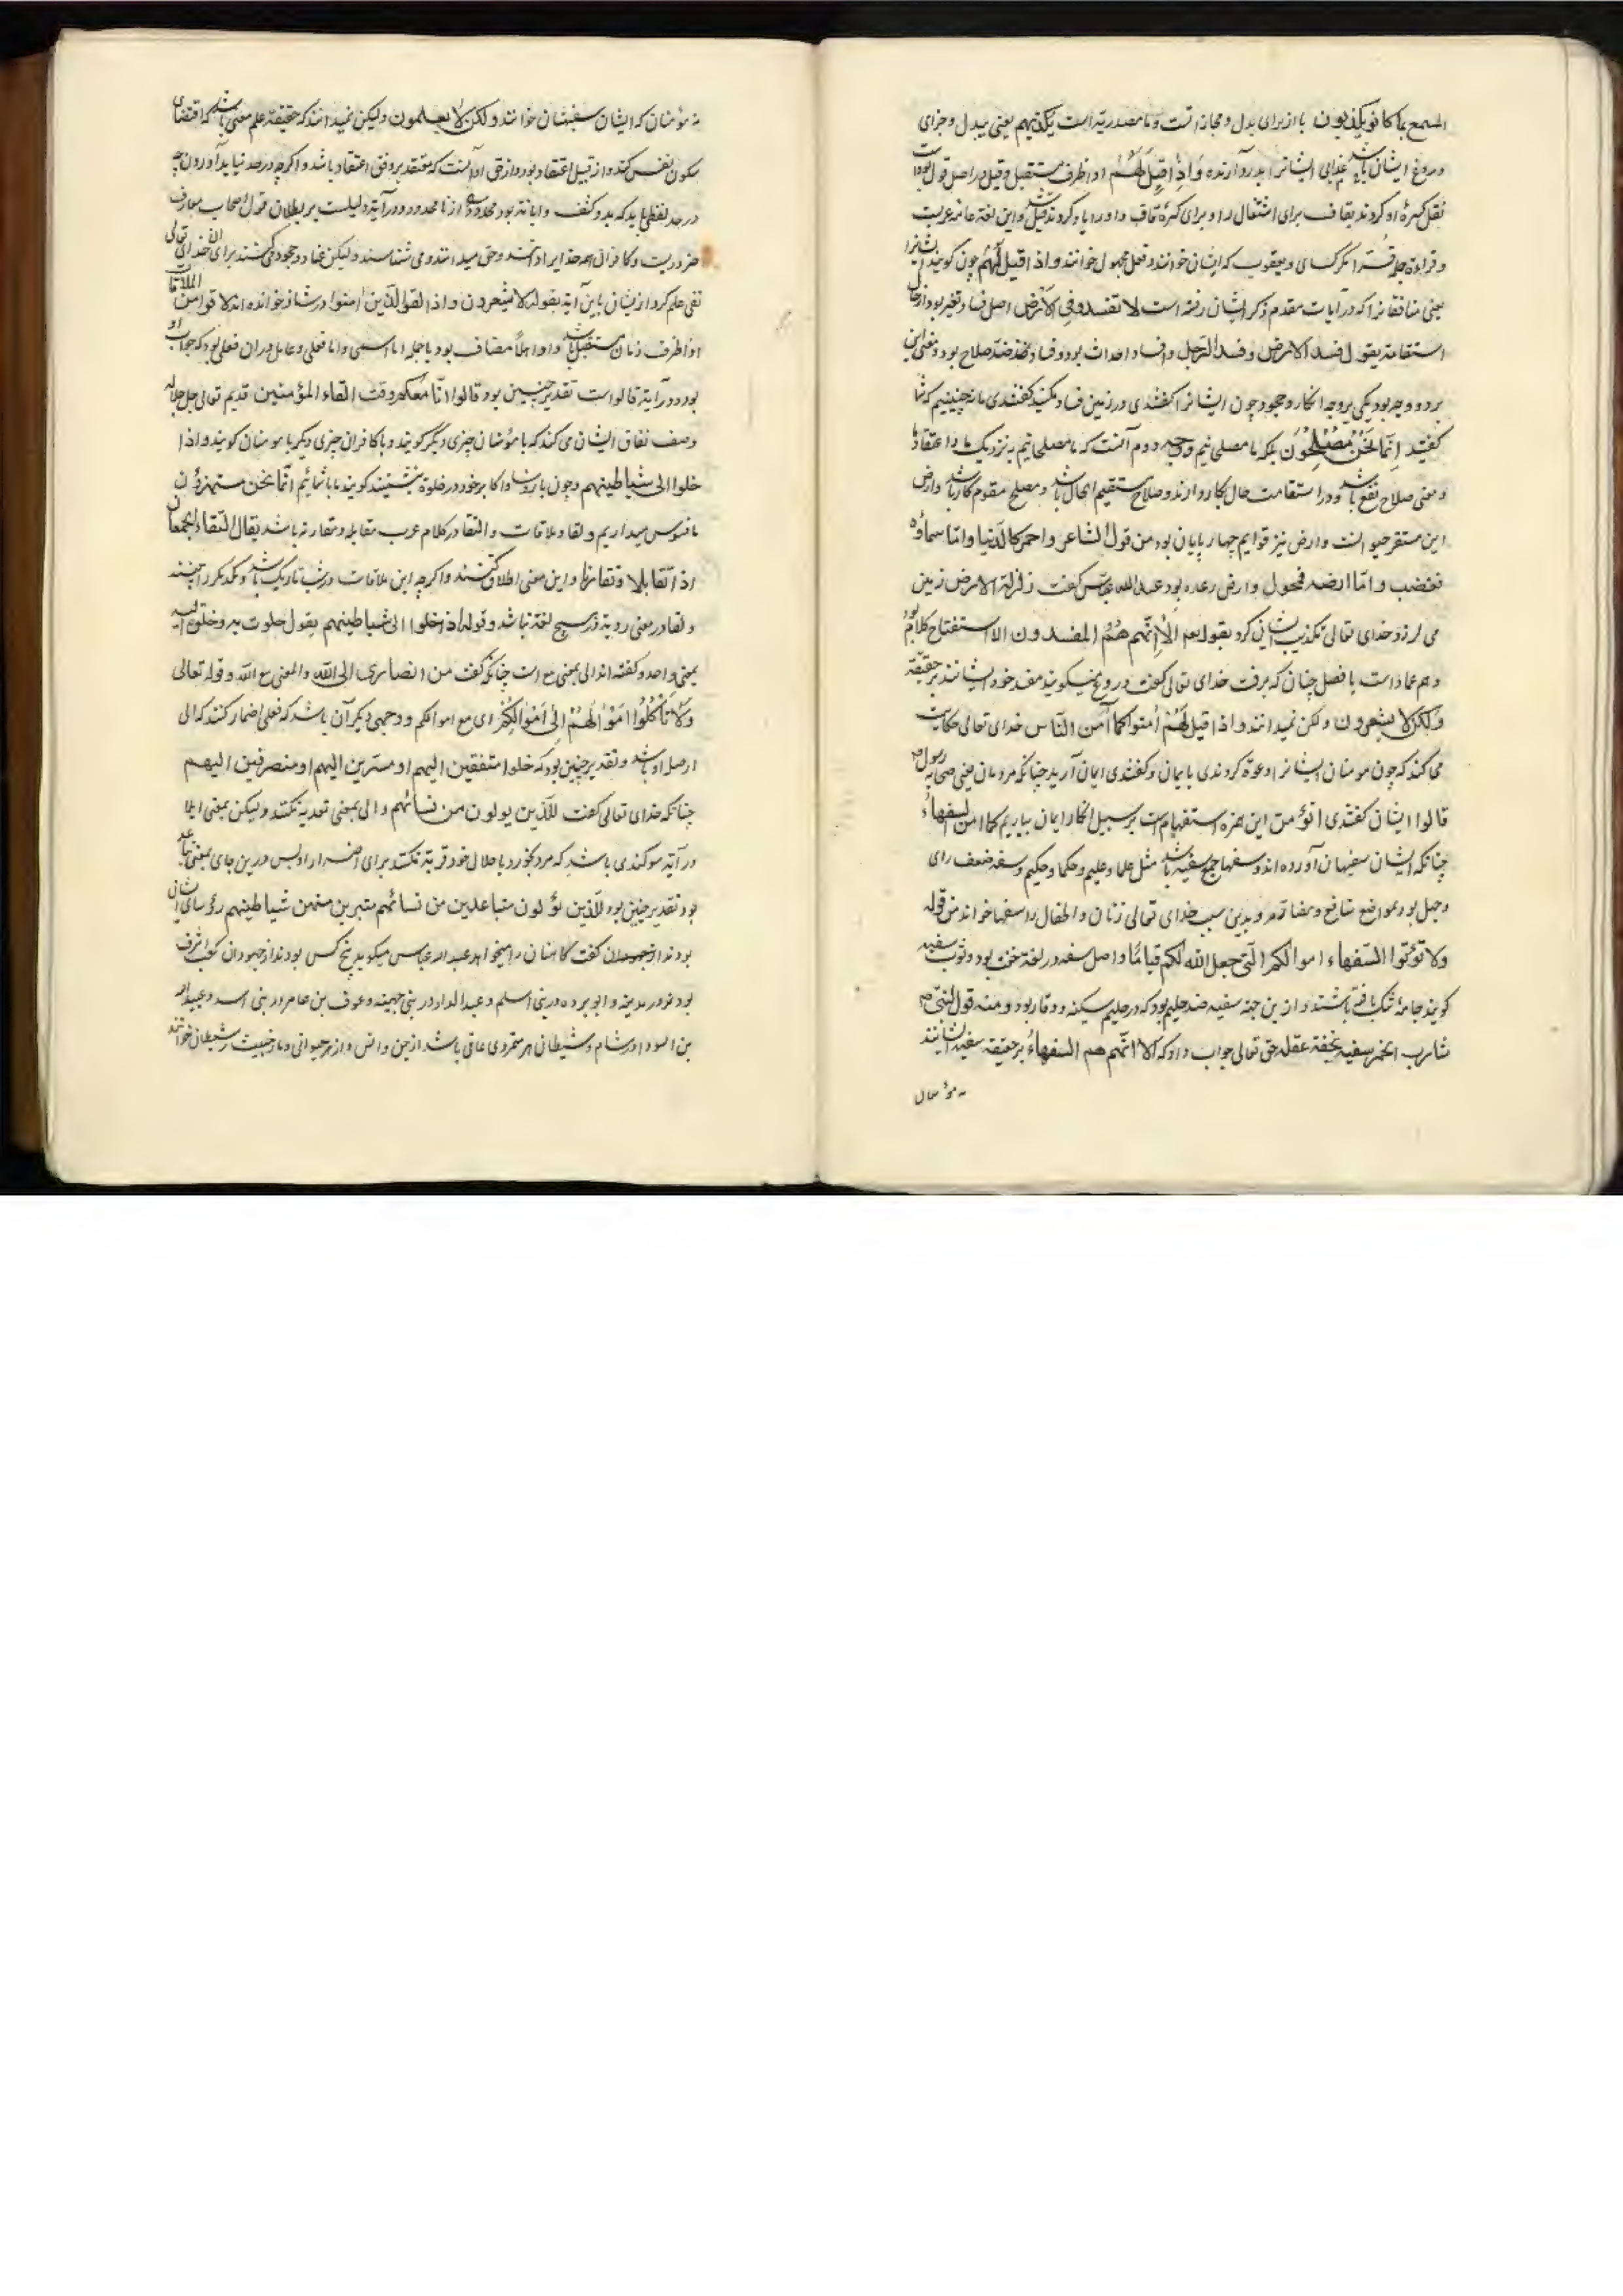 المسمع بما كانو يكذبون با از برای بدل و مجازاتست و ما مصدریة است یکذبهم یعنی ببدل و جزای
دروغ ایشان باشد عذابی ایشانرا بدرد آرنده وَاِذَا قِيلَ لَهُمْ اذا ظرف مستقبل و قیل در اصل قول بوده است
نقل کسرهٔ او کردند بقاف برای استثقال را و برای کسرهٔ قاف واو را یا کردند قیل شد و این لغة عامهٔ عربست
و قراءة جملهٔ قراء مگر کسای و یعقوب که ایشان خوانند و فعل مجهول خوانند و اذا قيل لهم چون گویند ایشانرا
یعنی منافقانرا که در آیات مقدم ذکر ایشان رفته است لا تفسدو في الأرض اصل فساد تغیر بود از حال
استقامة یقول فسد الارض و فسد الرجل و افساد احداث بود و فساد نقیض صلاح بود و معنی این
بر دو وجه بود یکی بر وجه انکار و جحود چون ایشانرا گفتندی در زمین فساد مکنید گفتندی ما نه چنینیم که شما
گفتید إِنَّمَا نَحْنُ مُصْلِحُونَ بلکه ما مصلحانیم وجه دوم آنست که ما مصلحانیم به نزدیک ما و اعتقاد ما
و معنی صلاح نفع باشد و در استقامت حال بکار دارند و صلاح مستقیم الحال باشد و مصلح مقوم کار باشد و ارض
این مستقر حیوانست و ارض نیز قوایم چهارپایان بود من قول الشاعر و احمر كالدنيا و امّا سماؤه
فخضب و امّا ارضه فمحول و ارض رعده بود عبدالله عباس گفت زلزلة الارض زمین
می لرزد خدای تعالی تکذیب ایشان کرد بقوله ألا إنّهم هُمُ المفسدون الا استفتاح کلام بود
و هم عماد است یا فصل چنان که برفت خدای تعالی گفت دروغ میگویند مفسد خود ایشانند بر حقیقة
ولكن لا يشعرون و لکن نمیدانند و اذا قيل لَهُمْ اٰمنوا كما آمن النّاس خدای تعالی حکایت
می کند که چون مومنان ایشانرا دعوة کردندی بایمان و گفتندی ایمان آرید چنانکه مردمان یعنی صحابه رسول
قالوا ایشان گفتندی انؤمن این همزه استفهام است بر سبیل انکار ایمان بیاریم كما امن السفهاء
چنانکه ایشان سفیهان آورده اند و سفها جمع سفیه باشد مثل علما و علیم و حکما و حکیم و سفه ضعف رای
و جهل بود بمواضع منافع و مضار و بدین سبب خدای تعالی زنان و اطفال را سفها خواند من قوله
ولا تؤتوا السّفهاء اموالكم الّتي جعل الله لكم قيامًا و اصل سفه در لغة خفت بود و ثوب سفیه
گویند جامهٔ تنک بافته باشند و از ین جهة سفیه ضد حلیم بود که در حلیم سکینه و وقار بود و منه قول النبی
شارب الخمر سفیه لخفة عقله حق تعالی جواب داد که ألا انّهم هم السفهاءُ بر حقیقة سفیه ایشانند
نه مؤمنان
نه مؤمنان که ایشان سفیهشان خوانند ولكن لا يعلمون ولیکن نمیدانند که حقیقة علم معنی باشد که اقتضای
سکون نفس کند و از قبیل اعتقاد بود و از حق او آنست که معتقد بر وفق اعتقاد باشد و اگر چه در حد نیاید آوردن چه
در حد لفظی باید که بدو کشف و ابانة بود محدود از نامحدود و در آیة دلیلست بر بطلان قول اصحاب معارف
ضرورتست و کافران هم خدایرا دانند و حق میدانند و می شناسند و لیکن عناد و جحود می کنند برای آن خدای تعالی
نفی علم کرد از یشان باین آیة بقوله لا يشعرون و اذا لقوا الّذين اٰمنوا در شاذ خوانده اند لاقوا من الملاقاة
اذا ظرف زمان مستقبل باشد و او ابدًا مضاف بود با جمله اما اسمی و اما فعلی و عامل در ان فعلی بود که جواب او
بود و در آیة قالواست تقدیر چنین بود قالوا انّا معكم وقت القاء المؤمنين قدیم تعالی جل جلاله
وصف نفاق ایشان می کند که با مؤمنان چیزی دیگر گویند و با کافران چیزی دیگر با مومنان گویند و اذا
خلوا الى شياطينهم و چون با رؤسا و اکابر خود در خلوة بنشینند گویند ما با شمائیم انّما نحن مستهزؤن
ما فسوس میداریم و لقا و ملاقات و التقا در کلام عرب مقابله و مقارنه باشد یقال التقاء الجمعان
اذا تقابلا و تقارنا و این معنی اطلاق کنند و اگر چه این ملاقات در شب تاریک باشد و یکدیگر را نبینند
و لقا در معنی رویة در هیچ لغة نباشد و قوله اذا خلوا الى شياطينهم یقول خلوت به و خلوة الیه
بمعنی واحد و گفته اند الی بمعنی مع است چنانکه گفت من انصاری الى الله و المعنی مع الله و قوله تعالی
وَلَا تَأْكُلُوا اَمْوَالَهُمْ اِلٰى اَمْوَالِكُمْ ای مع اموالکم و وجهی دیگر آن باشد که فعلی اضمار کنند که الی
از صله او باشد و تقدیر چنین بود که خلوا متفقین الیهم او مسترین الیهم او منصرفین الیهم
چنانکه خدای تعالی گفت للّذین یولون من نسائهم و الی بمعنی تعدیه نکند و لیکن بمعنی ایلا
در آیة سوگندی باشد که مرد بخورد با حلال خود قربة نکند برای اضرار او پس درین جای بمعنی تباعد
بود تقدیر چنین بود للّذین یؤلون متباعدین من نسائهم متبرین منهن شیاطینهم رؤسای ایشان
بودند از جهودان گفت کاهنان را میخواهد عبدالله عباس میگوید پنج کس بودند از جهودان کعب اشرف
بود در مدینه و ابو برده در بنی اسلم و عبد الدار در بنی جهینه و عوف بن عامر در بنی اسد و عبدالله
بن السودا در شام و شیطانی هر متمردی عاتی باشد از جن و انس و از هر حیوانی و مار خبیث را شیطان خوانند